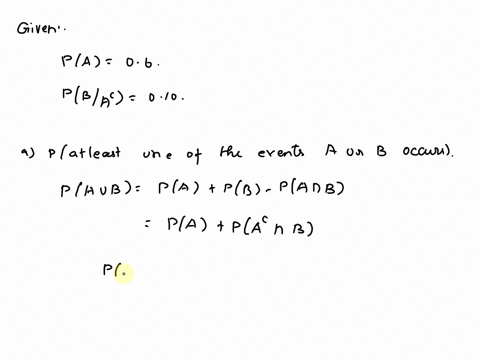 Given:.
P(A) = 0.6.
P(B/A^c) = 0.10.
a) P(atleast one of the events A or B occurs).
P(A∪B) = P(A) + P(B) - P(A∩B)
= P(A) + P(A^c ∩ B)
P(.